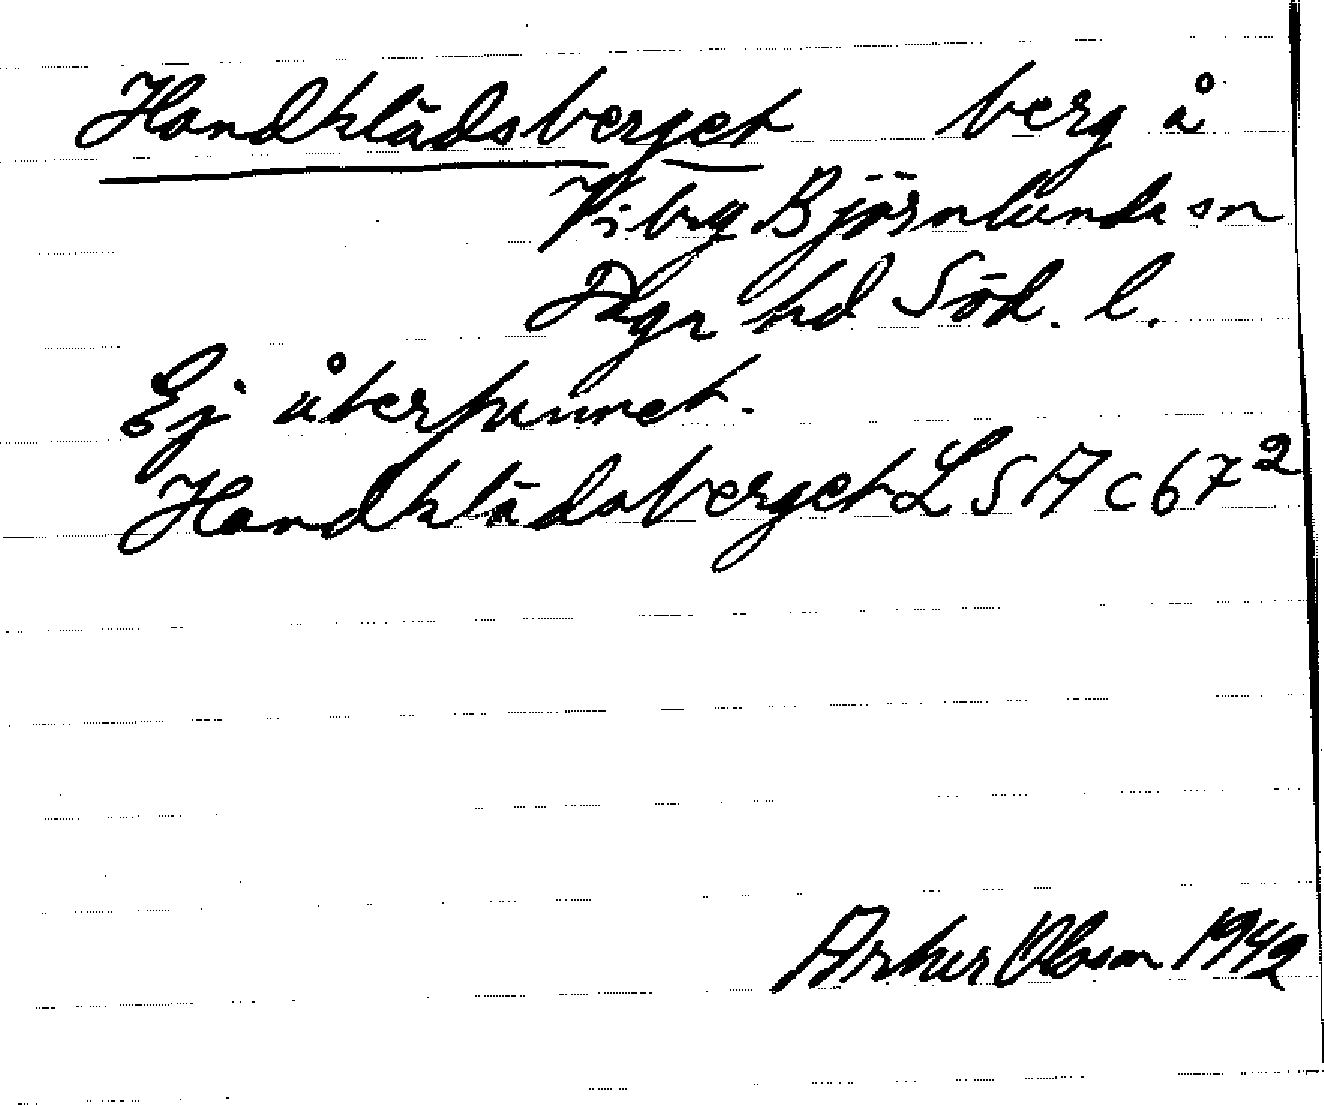 Handklädsberget berg å
Viby Björnlunda sn
Daga hd Söd. l.
Ej återfunnet.
Handklädsberget LSA C 67²
Arthur Olsson 1942